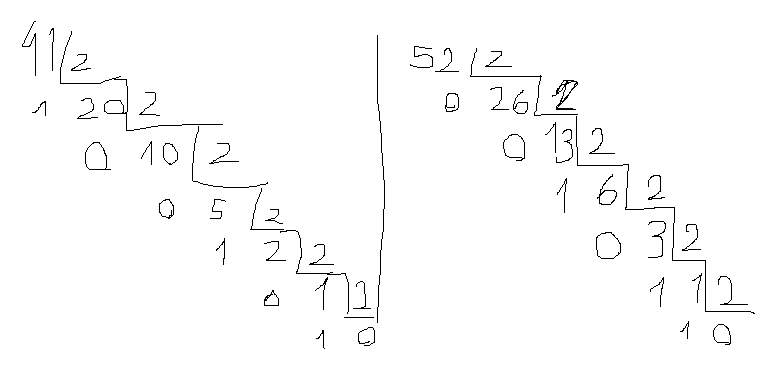 41 2
1 20 2
0 10 2
0 5 2
1 2 2
0 1 2
1 0
52 2
0 26 2
0 13 2
1 6 2
0 3 2
1 1 2
1 0